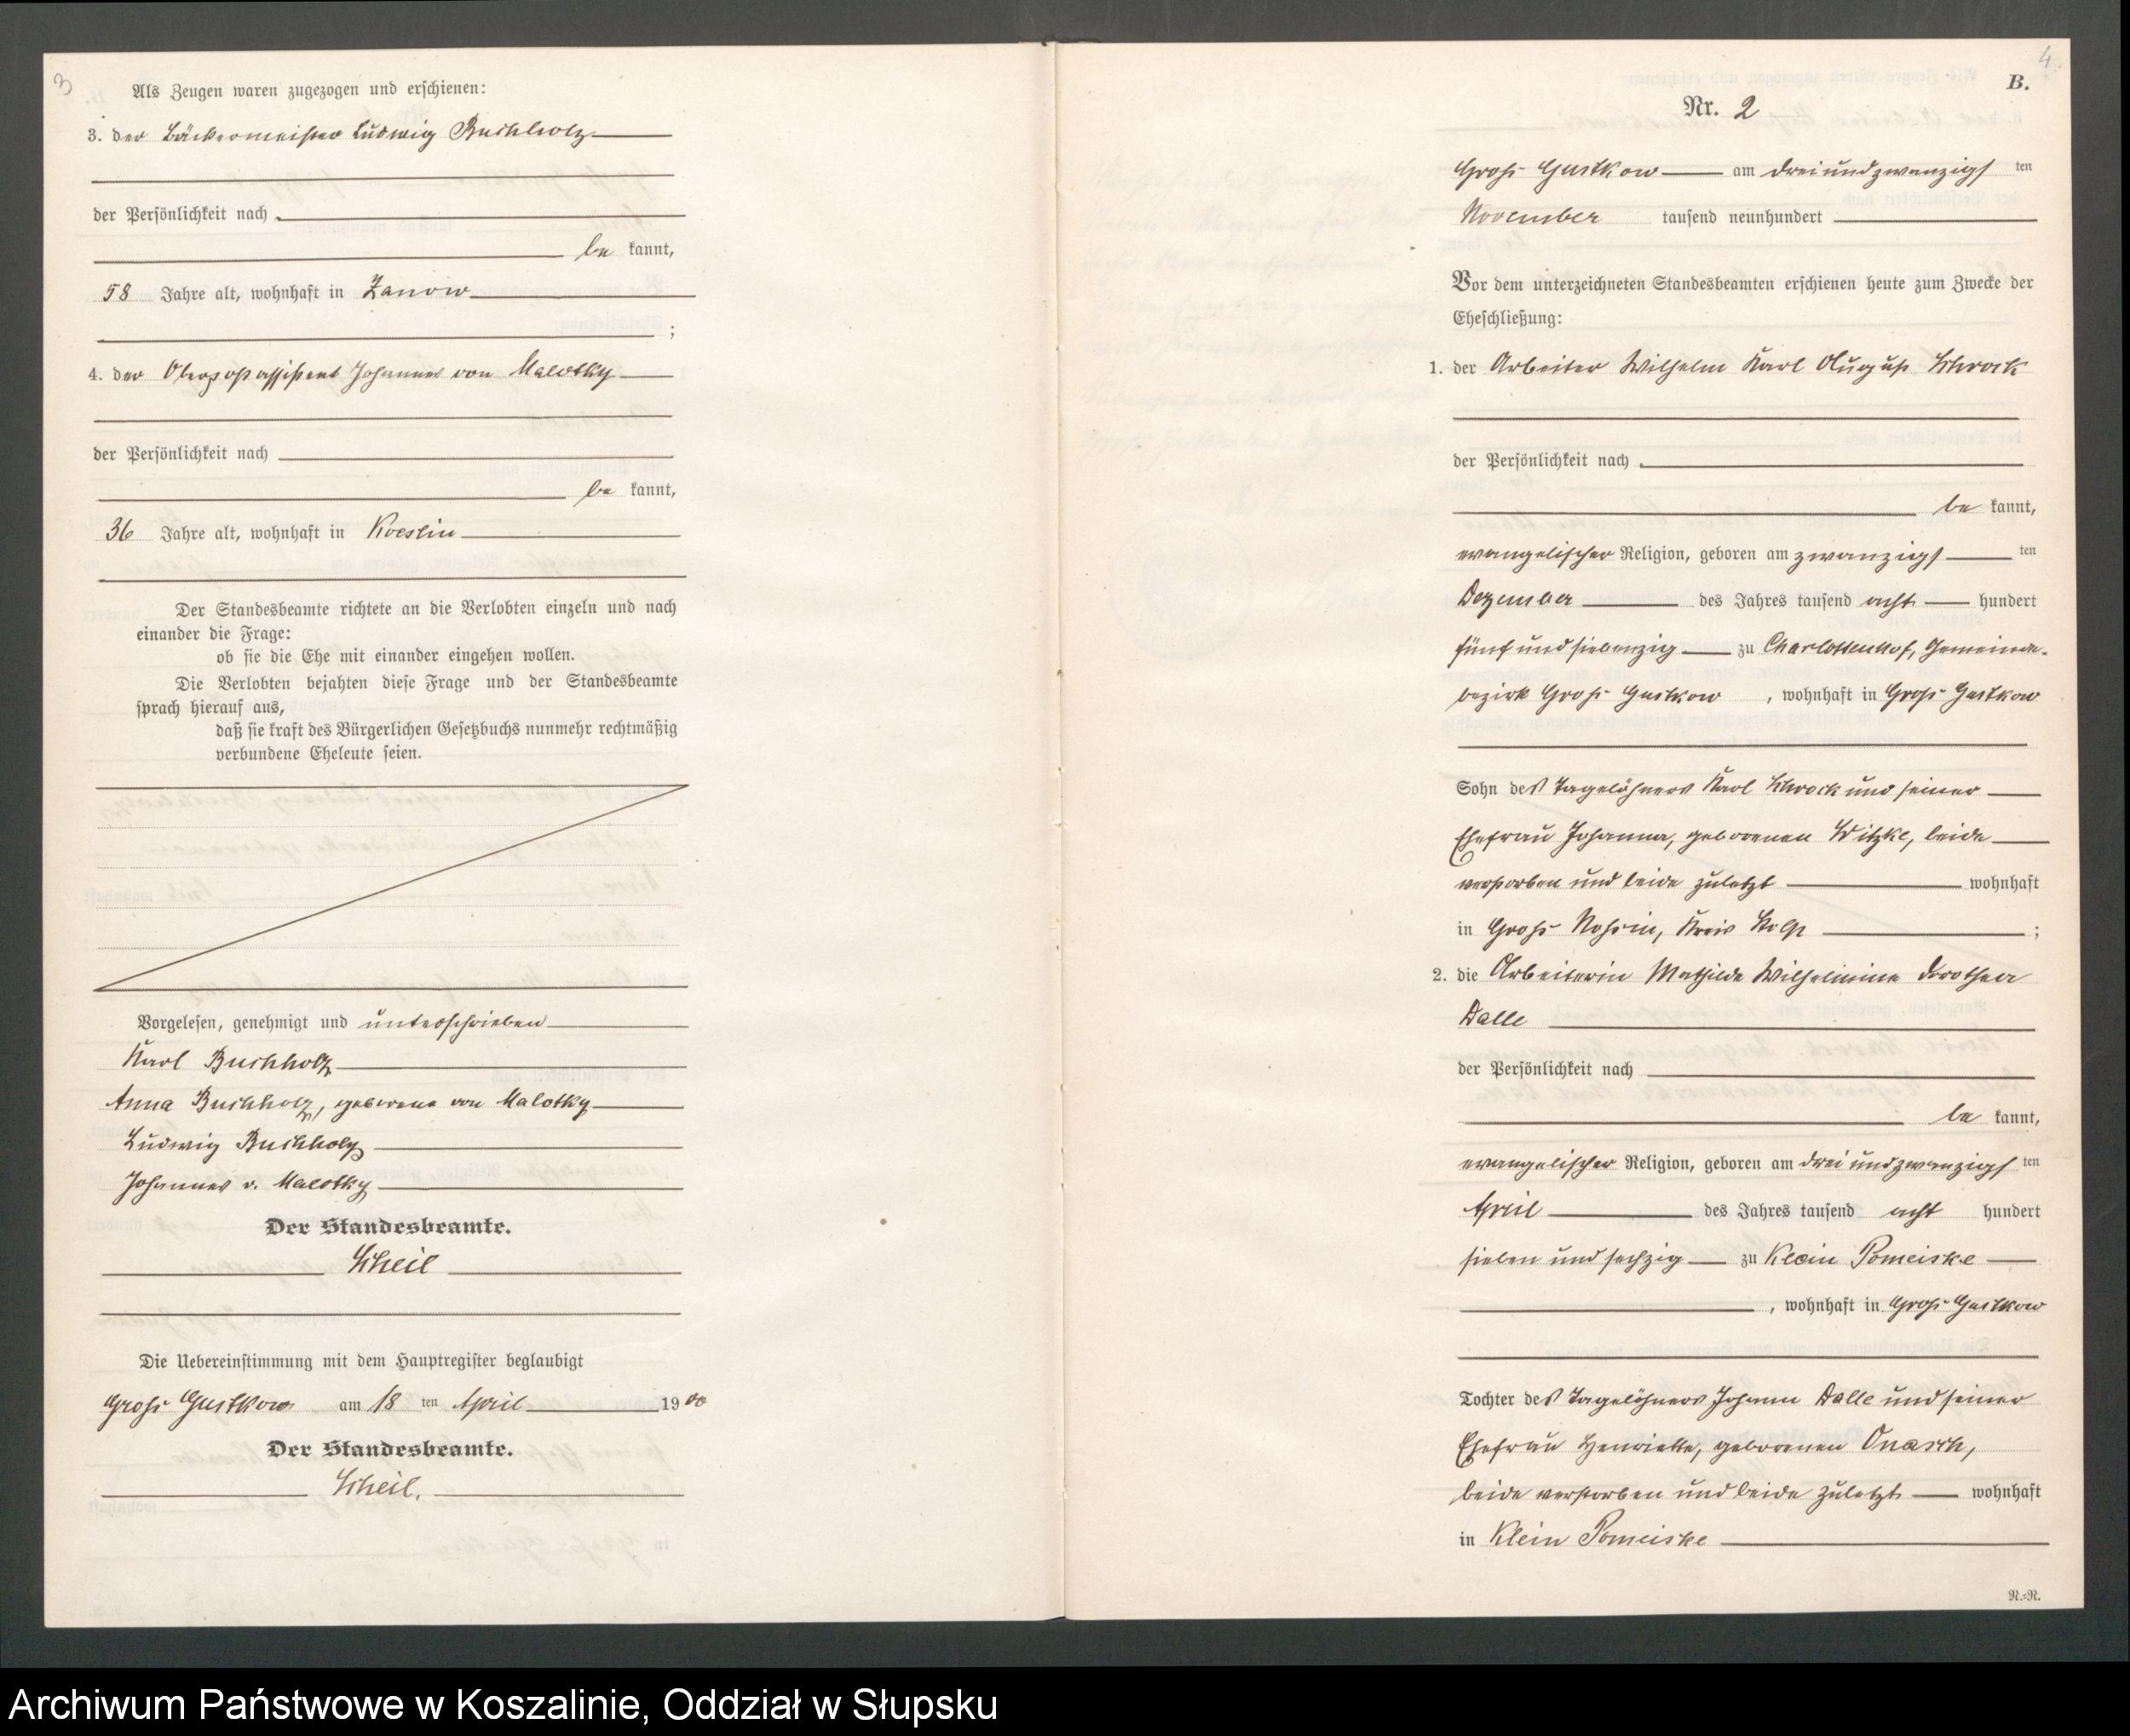 3
Als Zeugen waren zugezogen und erschienen:
3. der Bäckermeister Ludwig Buchholz
der Persönlichkeit nach
be kannt,
58 Jahre alt, wohnhaft in Zanow
;
4. der Oberpostassistent Johannes von Malotky
der Persönlichkeit nach
be kannt,
36 Jahre alt, wohnhaft in Koeslin
Der Standesbeamte richtete an die Verlobten einzeln und nach
einander die Frage:
ob sie die Ehe mit einander eingehen wollen.
Die Verlobten bejahten diese Frage und der Standesbeamte
sprach hierauf aus,
daß sie kraft des Bürgerlichen Gesetzbuchs nunmehr rechtmäßig
verbundene Eheleute seien.
Vorgelesen, genehmigt und unterschrieben
Karl Buchholz
Anna Buchholz, geborene von Malotky
Ludwig Buchholz
Johannes v. Malotky
Der Standesbeamte.
Scheil
Die Uebereinstimmung mit dem Hauptregister beglaubigt
Groß Gustkow am 18 ten April 1900
Der Standesbeamte.
Scheil.
4
B.
Nr. 2
Groß Gustkow am dreiundzwanzigs ten
November tausend neunhundert
Vor dem unterzeichneten Standesbeamten erschienen heute zum Zwecke der
Eheschließung:
1. der Arbeiter Wilhelm Karl August Schrock
der Persönlichkeit nach
be kannt,
evangelischer Religion, geboren am zwanzigs ten
Dezember des Jahres tausend acht hundert
fünf und siebenzig zu Charlottenhof, Gemeinde-
bezirk Groß Gustkow, wohnhaft in Groß Gustkow
Sohn des Tagelöhners Karl Schrock und seiner
Ehefrau Johanna, geborenen Witzke, beide
verstorben und beide zuletzt wohnhaft
in Groß Nossin, Kreis Stolp ;
2. die Arbeiterin Mathilde Wilhelmine Dorothea
Dalle
der Persönlichkeit nach
be kannt,
evangelischer Religion, geboren am drei und zwanzigs ten
April des Jahres tausend acht hundert
sieben und sechzig zu Klein Pomeiske
, wohnhaft in Groß Gustkow
Tochter des Tagelöhners Johann Dalle und seiner
Ehefrau Henriette, geborenen Onasch,
beide verstorben und beide zuletzt wohnhaft
in Klein Pomeiske
R.-R.
Archiwum Państwowe w Koszalinie, Oddział w Słupsku